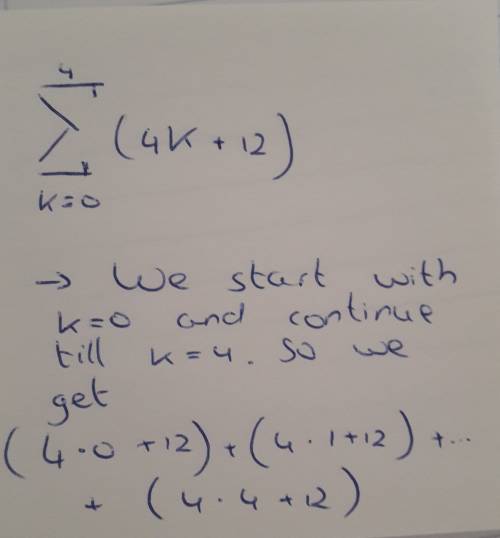 4
∑ (4K + 12)
K=0
→ We start with
K=0 and continue
till K=4. So we
get
(4·0 +12) + (4·1+12) +...
+ (4·4+12)